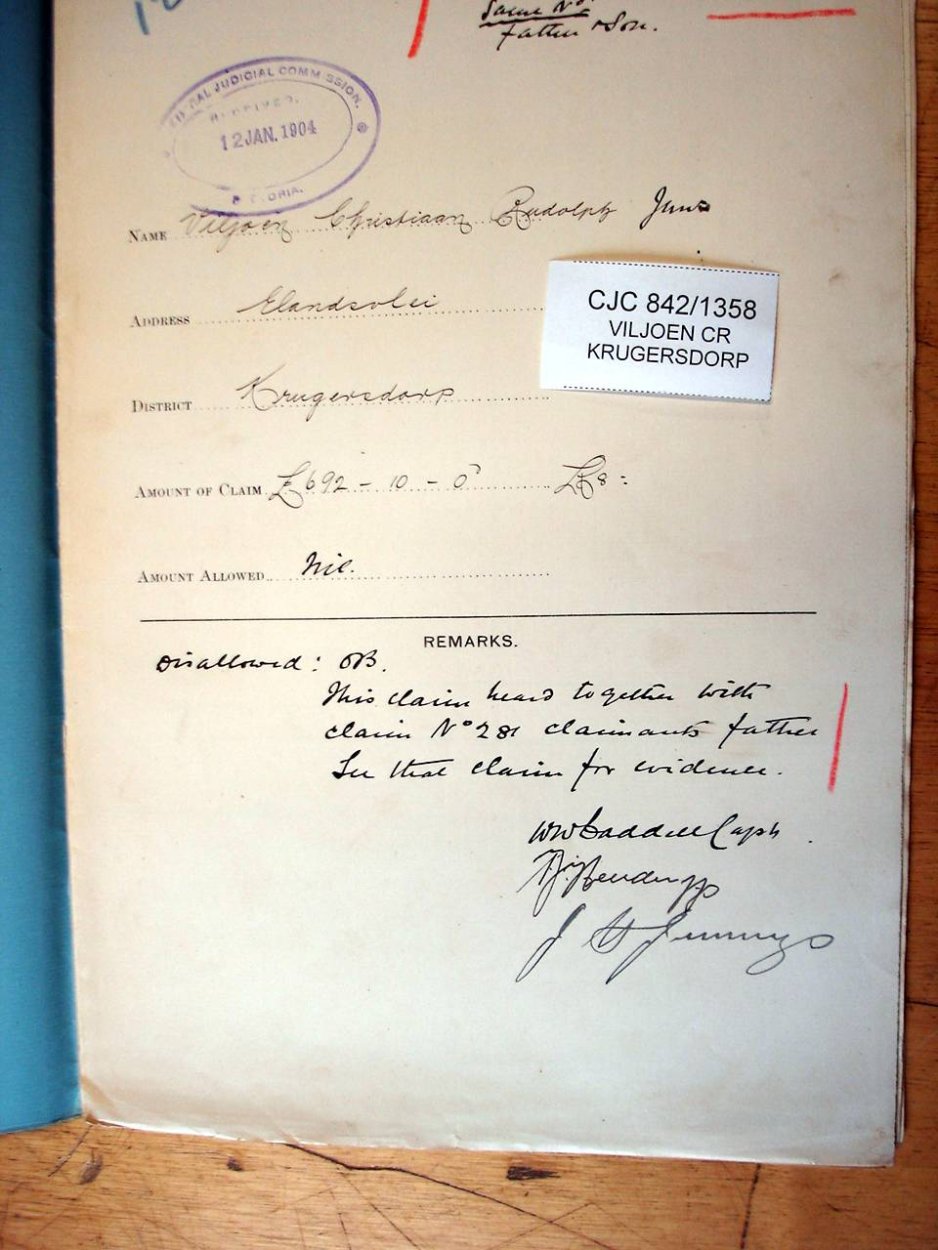 Same No.
Father & Son.
JUDICIAL COMMISSION.
RECEIVED.
12 JAN. 1904
NAME Viljoen Christiaan Rudolph Junr
ADDRESS Elandsvlei
CJC 842/1358
VILJOEN CR
KRUGERSDORP
DISTRICT Krugersdorp
AMOUNT OF CLAIM £692 - 10 - 0
AMOUNT ALLOWED Nil.
REMARKS.
Disallowed: OB.
This claim heard together with
claim No 281 claimants father
See that claim for evidence.
Capt
J H Jennings